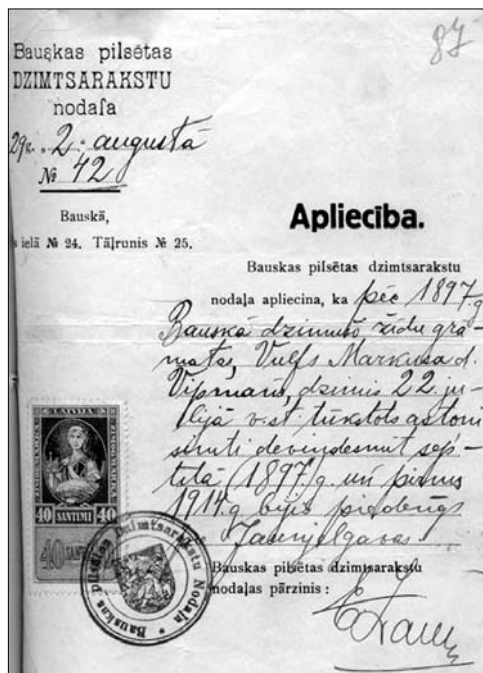 87
Bauskas pilsētas
DZIMTSARAKSTU
nodaļa
29g. 2. augustā
№ 42
Bauskā,
s ielā № 24. Tāļrunis № 25.
Apliecība.
Bauskas pilsētas dzimtsarakstu
nodaļa apliecina, ka pēc 1897.g
Bauskā dzimušo židu grā-
matas, Vulfs Markusa d.
Vipmans, dzimis 22. jū-
lijā v. st. tūkstots astoņi
simti deviņdesmit sep-
tītā (1897) g. un pirms
1914. g. bijis piederīgs
Jaunjelgavas
LATVIJA
40 SANTIMI 40
40 SANTIMI
Bauskas pilsētas Dzimtsarakstu Nodaļa
Bauskas pilsētas dzimtsarakstu
nodaļas pārzinis: